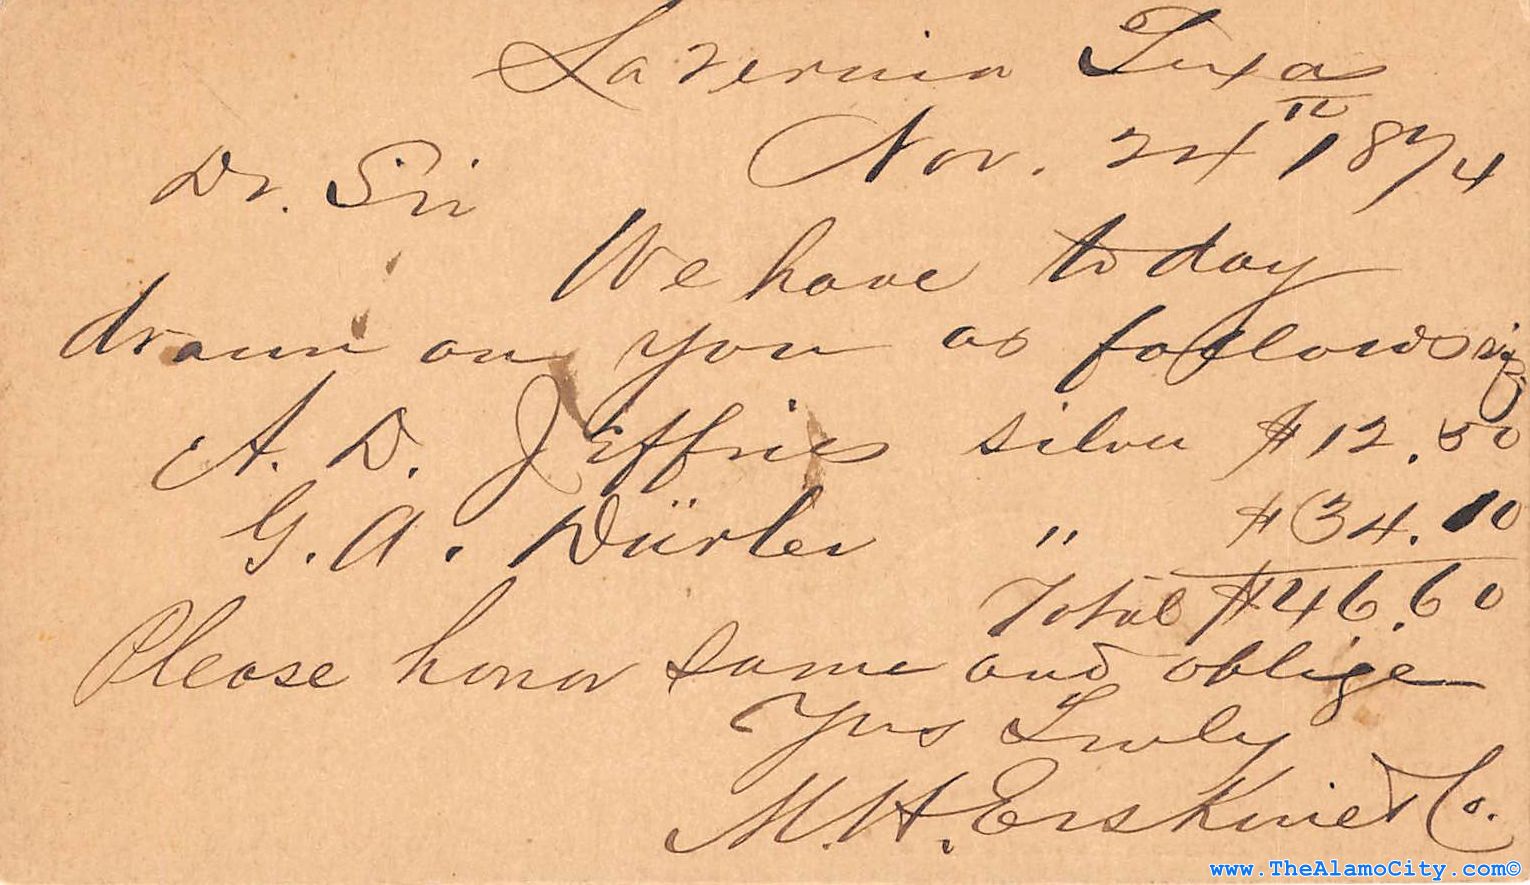 Lavernia Texas
Nov. 24th 1874
Dr. Sir
We have to day
drawn on you as follows viz
A. D. Jeffries silver $12.50
G. A. Dürler " $34.10
Total $46.60
Please honor same and oblige
Yrs Truly
M. H. Erskine & Co.
www.TheAlamoCity.com©